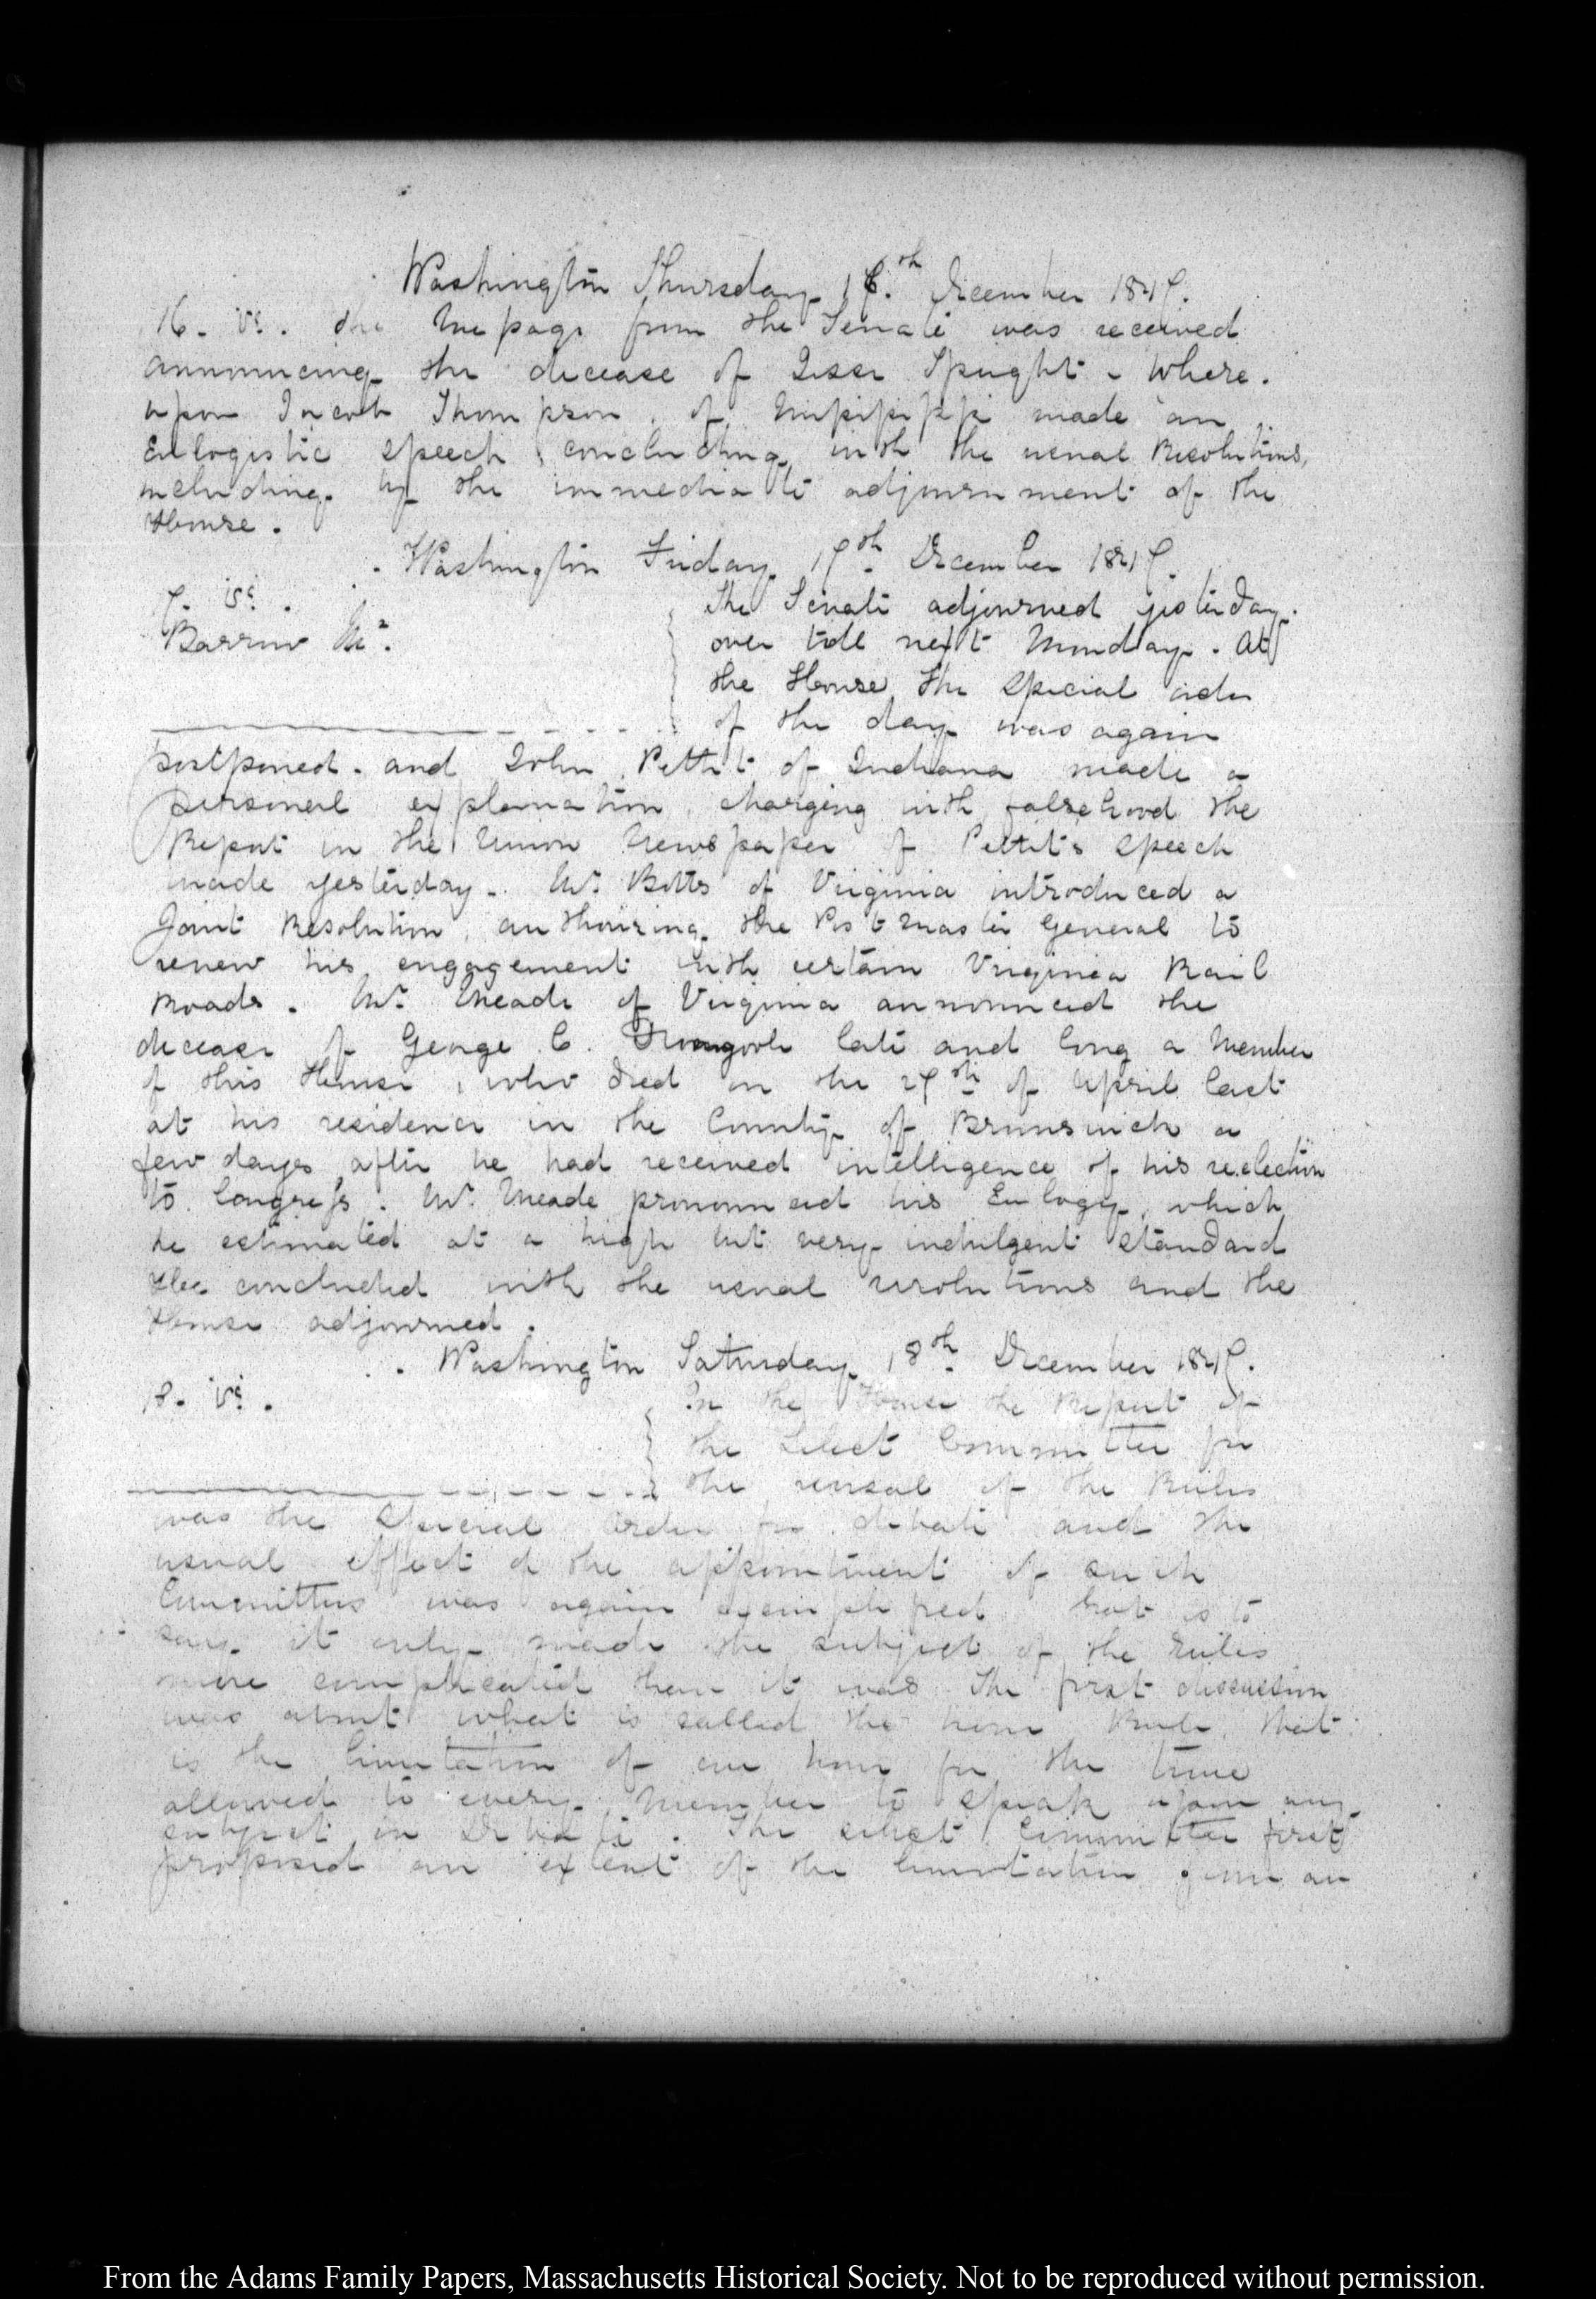 Washington Thursday 16.th December 1847.
16. V.e. the Message from the Senate was received
announcing the decease of Jesse Speight. Where-
upon Jacob Thompson, of Mississippi made an
Eulogistic speech, concluding with the usual Resolutions,
including the immediate adjournment of the
House.
Washington Friday 17th December 1847.
7. V.e.
Barrow
The Senate adjourned yesterday
over till next Monday. At
the House the special order
of the day was again
postponed. and John Pettit of Indiana made a
personal explanation, charging with falsehood the
Report in the Union Newspaper of Pettit's speech
made yesterday. Mr. Botts of Virginia introduced a
Joint Resolution, authorizing the Postmaster General to
renew his engagement with certain Virginia Rail
Roads. Mr. Meade of Virginia announced the
decease of George C. Dromgoole late and long a Member
of this House, who died on the 27th of April last
at his residence in the County of Brunswick a
few days after he had received intelligence of his reelection
to Congress. Mr. Meade pronounced his Eulogy, which
he estimated at a high but very indulgent standard
He concluded with the usual resolutions and the
House adjourned.
Washington Saturday 18th December 1847.
V.e.
In the House the Report of
the Select Committee for
the revisal of the Rules
was the special order for debate and the
usual effect of the appointment of such
Committees was again exemplified that is to
say it only made the subject of the rules
more complicated than it was. The first discussion
was about what is called the hour Rule, that
is the limitation of one hour for the time
allowed to every Member to speak upon any
subject in Debate. The select Committee first
proposed an extent of the limitation from an
From the Adams Family Papers, Massachusetts Historical Society. Not to be reproduced without permission.